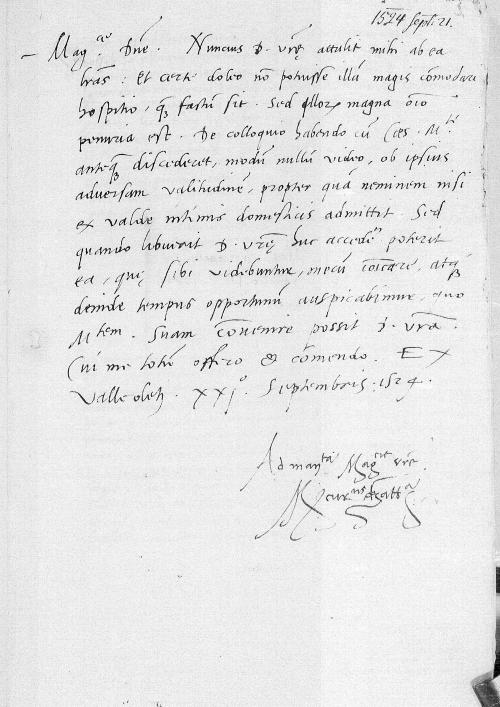 1524 Sept. 21.
Mag.ce Dne. Nuncius D. vrę attulit mihi ab ea
lras: Et certe doleo nō potuisse illū magis cōmodari
hospitio, q̄ factū sit. Sed illorum magna oīo
penuria est. De colloquio habendo cū Ces. M.te
anteq̄ discederet, modū nullū video, ob ipsius
adversam valitudinē, propter quā neminem nisi
ex valde intimis domesticis admittit. Sed
quando libuerit D. vrę huc accedere poterit
ea, quę sibi videbuntur, mecū cōicare, atq
deinde tempus opportunū auspicabimur, quo
M.tem Suam cōvenire possit D. vra.
Cui me totū offero & cōmendo. EX
Valleoleti. XXIo. Septembris. 1524.
Ad man.ta Mag.cie vre
Mercurinus Gatta